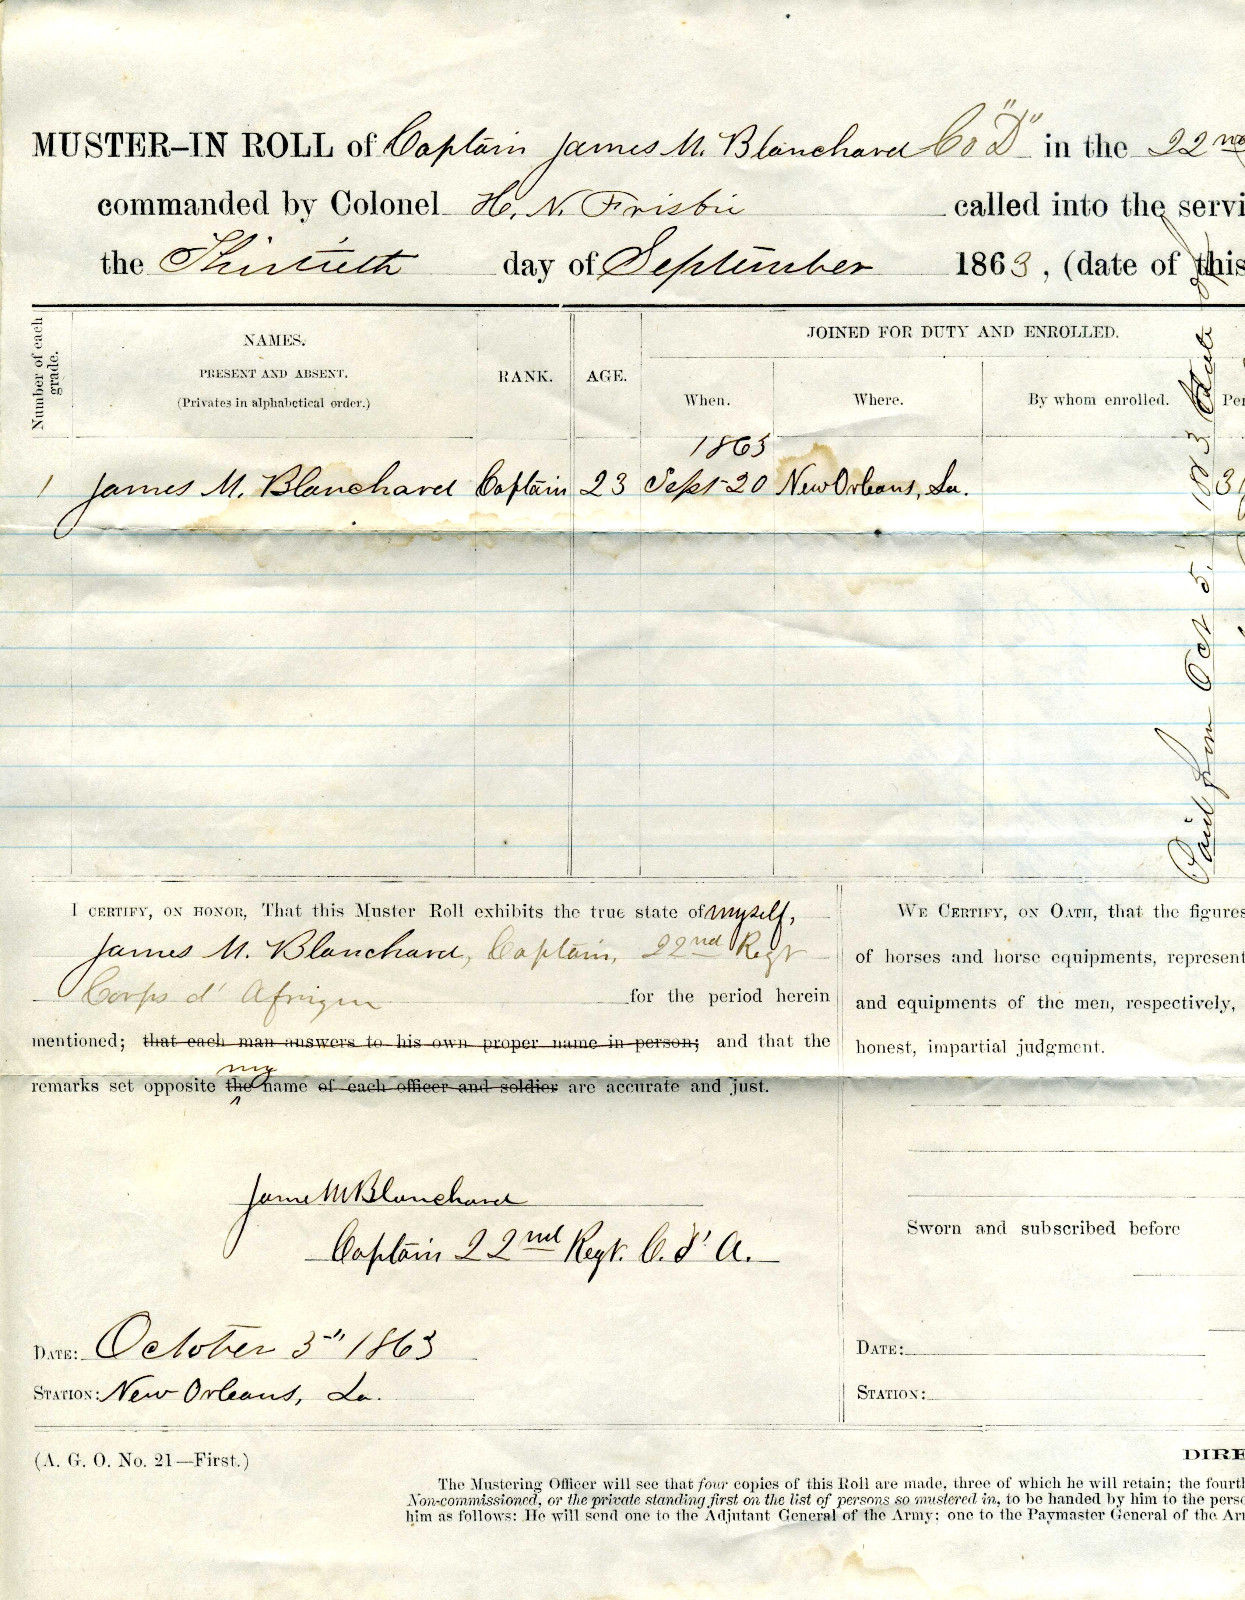 MUSTER-IN ROLL of Captain James M. Blanchard Co "D" in the 22nd
commanded by Colonel H. N. Frisbie called into the servi
the Thirtieth day of September 1863, (date of this
Number of each grade.
NAMES.
PRESENT AND ABSENT.
(Privates in alphabetical order.)
RANK.
AGE.
JOINED FOR DUTY AND ENROLLED.
When.
Where.
By whom enrolled.
Per
1863
1 James M. Blanchard Captain 23 Sept 20 New Orleans, La.
Paid from Oct 5, 1863
I CERTIFY, ON HONOR, That this Muster Roll exhibits the true state of myself,
James M. Blanchard, Captain, 22nd Regt
Corps d' Afrique for the period herein
mentioned; that each man answers to his own proper name in person; and that the
my
remarks set opposite the name of each officer and soldier are accurate and just.
James M Blanchard
Captain 22nd Regt. C. d' A.
DATE: October 3" 1863
STATION: New Orleans, La.
WE CERTIFY, ON OATH, that the figures
of horses and horse equipments, represent
and equipments of the men, respectively,
honest, impartial judgment.
Sworn and subscribed before
DATE:
STATION:
(A. G. O. No. 21—First.)
DIRE
The Mustering Officer will see that four copies of this Roll are made, three of which he will retain; the fourth
Non-commissioned, or the private standing first on the list of persons so mustered in, to be handed by him to the perso
him as follows: He will send one to the Adjutant General of the Army; one to the Paymaster General of the Ar